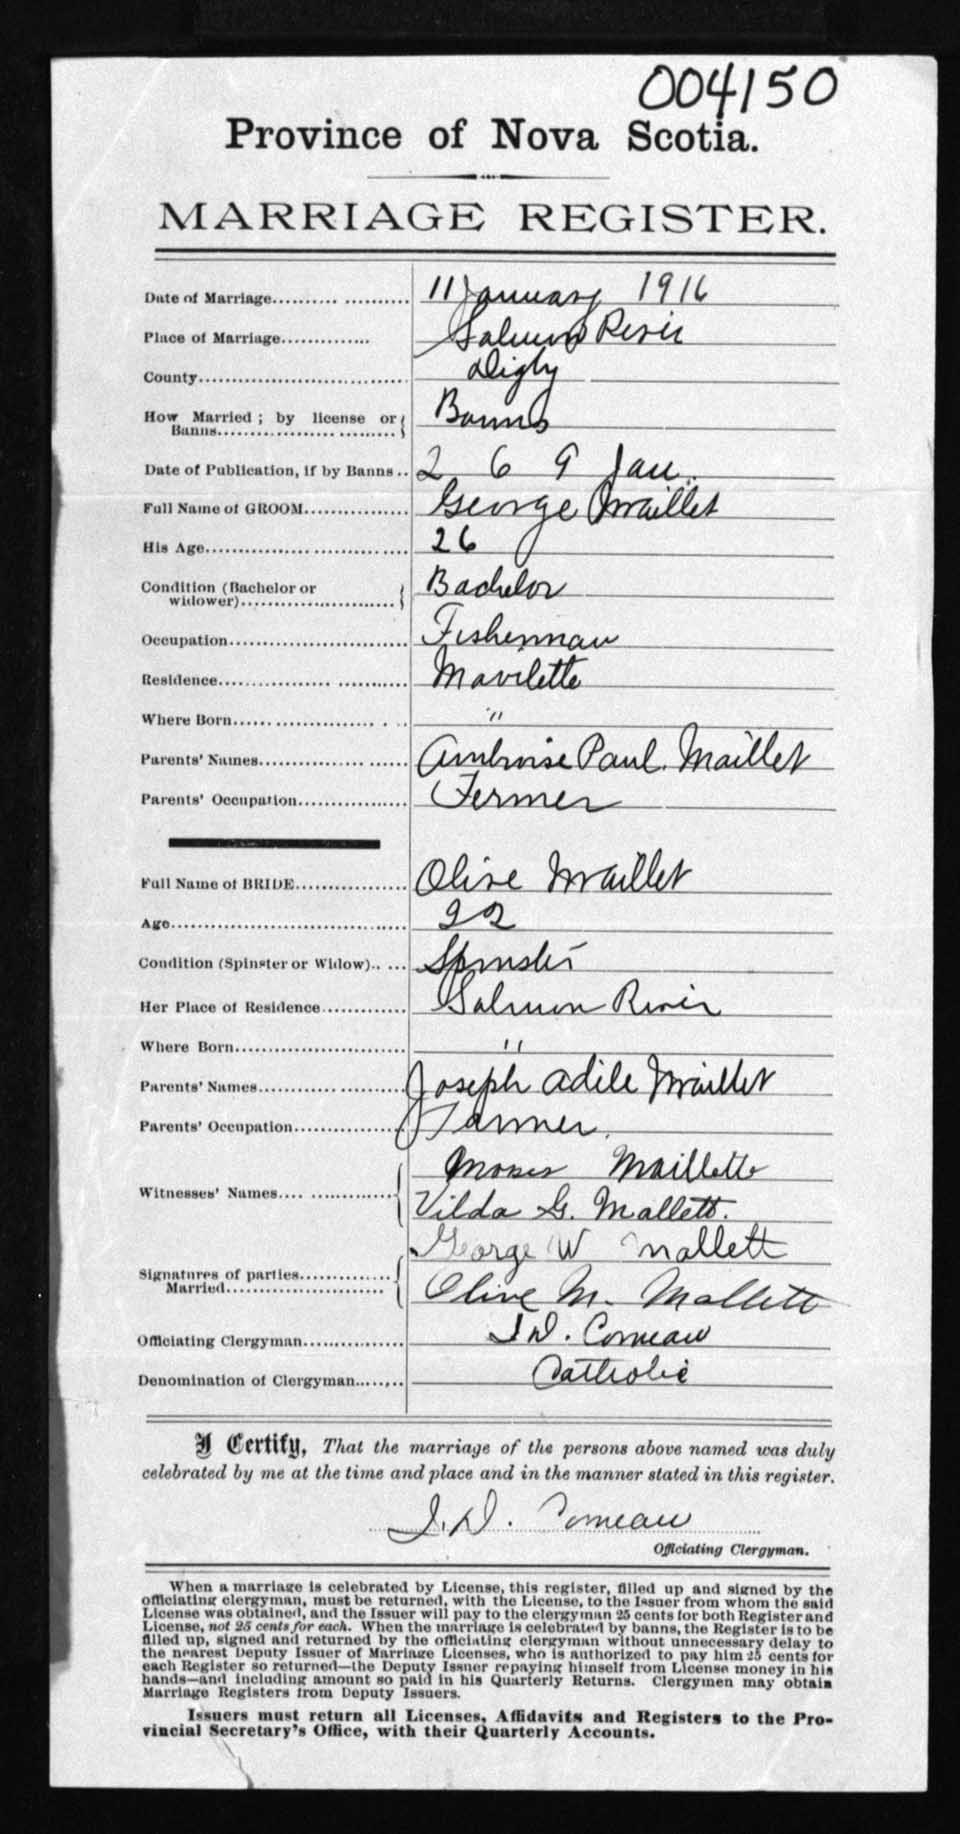 004150
Province of Nova Scotia.
MARRIAGE REGISTER.
Date of Marriage.......... 11 January 1916
Place of Marriage.............. Salmon River
County................................ Digby
How Married ; by license or
Banns........................ Banns
Date of Publication, if by Banns .. 2 6 9 Jan.
Full Name of GROOM............... George Maillet
His Age............................. 26
Condition (Bachelor or
widower)........................ Bachelor
Occupation.......................... Fisherman
Residence........................... Mavilette
Where Born...................... "
Parents' Names..................... Ambroise Paul Maillet
Parents' Occupation................ Fermer
Full Name of BRIDE................ Olive Maillet
Age.................................. 22
Condition (Spinster or Widow).. ... Spinster
Her Place of Residence............. Salmon River
Where Born......................... "
Parents' Names..................... Joseph Adile Maillet
Parents' Occupation................ Farmer.
Moses Maillette
Witnesses' Names.... ..............
Vilda G. Mallett.
George W Mallett
Signatures of parties..............
Married........................ Olive M. Mallett
Officiating Clergyman............... Comeau
Denomination of Clergyman....... Catholic
I Certify, That the marriage of the persons above named was duly
celebrated by me at the time and place and in the manner stated in this register.
Comeau
Officiating Clergyman.
When a marriage is celebrated by License, this register, filled up and signed by the
officiating clergyman, must be returned, with the License, to the Issuer from whom the said
License was obtained, and the Issuer will pay to the clergyman 25 cents for both Register and
License, not 25 cents for each. When the marriage is celebrated by banns, the Register is to be
filled up, signed and returned by the officiating clergyman without unnecessary delay to
the nearest Deputy Issuer of Marriage Licenses, who is authorized to pay him 25 cents for
each Register so returned—the Deputy Issuer repaying himself from License money in his
hands—and including amount so paid in his Quarterly Returns. Clergymen may obtain
Marriage Registers from Deputy Issuers.
Issuers must return all Licenses, Affidavits and Registers to the Pro-
vincial Secretary's Office, with their Quarterly Accounts.